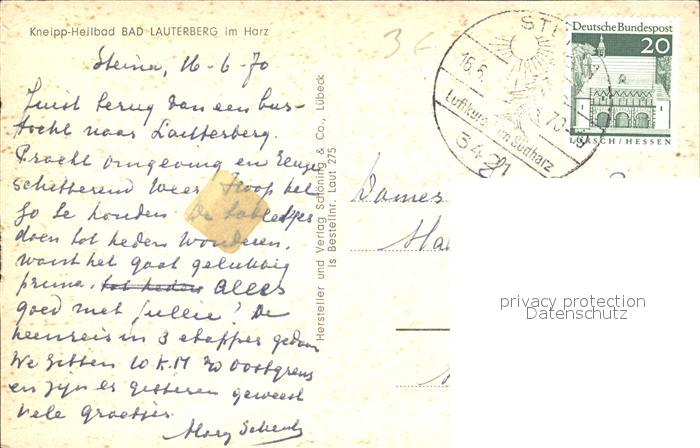 Kneipp-Heilbad BAD LAUTERBERG im Harz
Steina, 16-6-70
Juist terug van een bus-
tocht naar Lauterberg.
Pracht omgeving en
schitterend weer Hoop het
zo te houden De tabletjes
doen tot heden wonderen,
want het gaat gelukkig
prima. tot heden Alles
goed met jullie? De
heenreis in 3 etappes gedaan
We zitten 10 K.M
en zijn er gisteren geweest
Vele groetjes
Mary
Hersteller und Verlag Schöning & Co., Lübeck
is Bestellnr. Laut 275
36
ST
16.6.
70-
Luftkurort im Südharz
3421
Deutsche Bundespost
20
LORSCH/HESSEN
Dames
privacy protection
Datenschutz